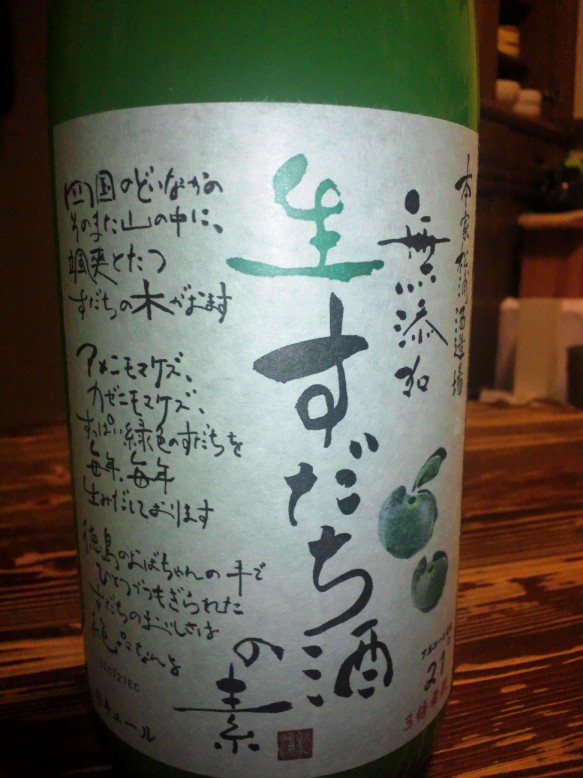 本家松浦酒造場
無添加
生すだち酒
の素
四国のどいなかの
そのまた山の中に、
颯爽とたつ
すだちの木がおます
アメニモマケズ、
カゼニモマケズ、
すっぱい緑色のすだちを
毎年、毎年
生みだしております
徳島のおばちゃんの手で
ひとつづつもぎられた
すだちのまぶしさは
21